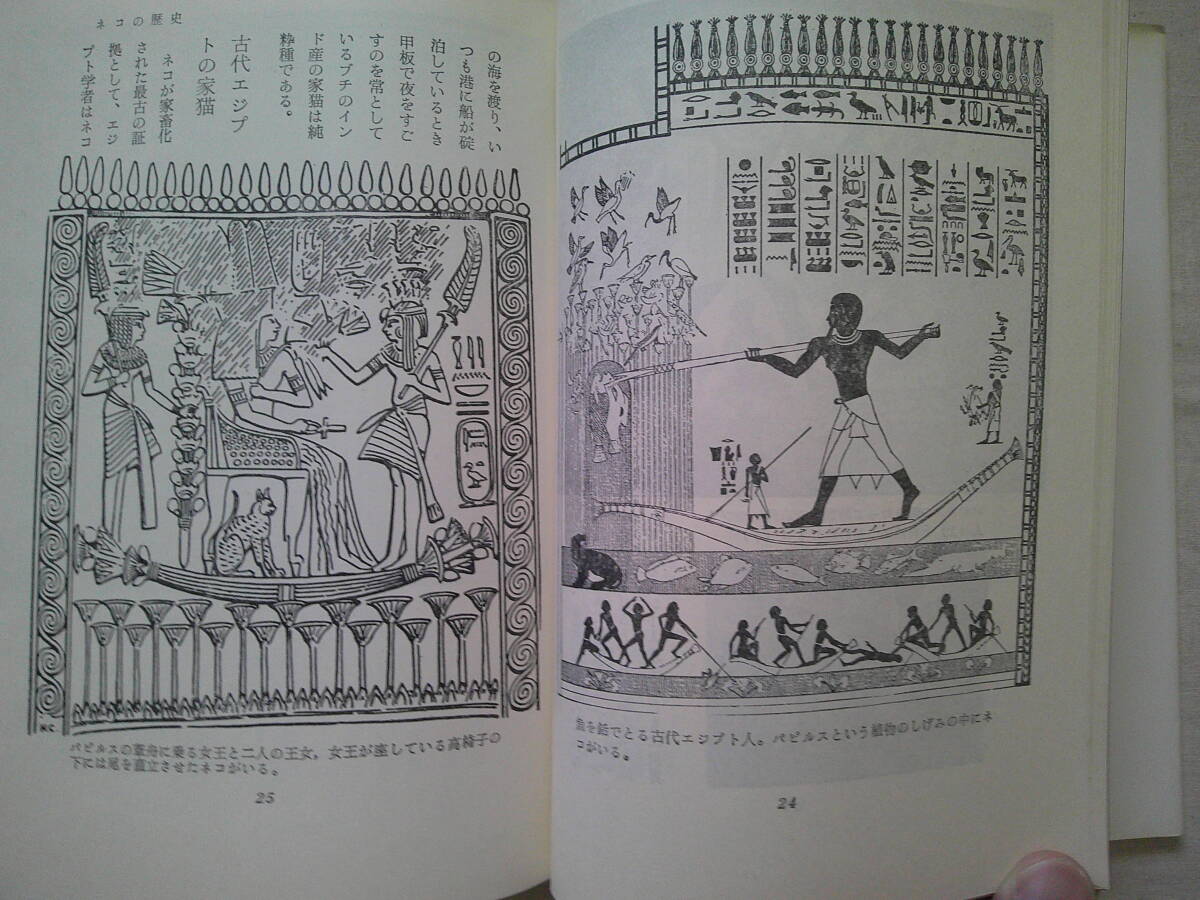 魚を銛でとる古代エジプト人。パピルスという植物のしげみの中にネ
コがいる。
24
ネコの歴史
の海を渡り、い
つも港に船が碇
泊しているとき
甲板で夜をすご
すのを常として
いるブチのイン
ド産の家猫は純
粋種である。
古代エジプ
トの家猫
ネコが家畜化
された最古の証
拠として、エジ
プト学者はネコ
パピルスの葦舟に乗る女王と二人の王女，女王が座している高椅子の
下には尾を直立させたネコがいる。
25